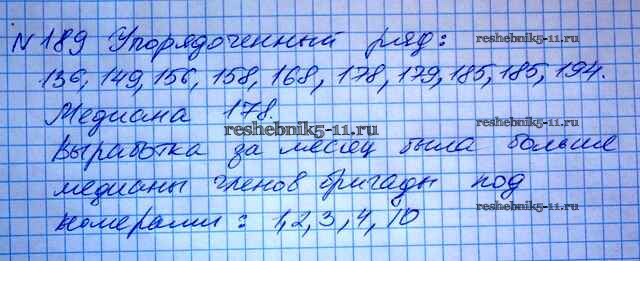 № 189 Упорядоченный ряд:
reshebnik5-11.ru
136, 149, 156, 158, 168, 178, 179, 185, 185, 194.
Медиана 178.
reshebnik5-11.ru
Выработка за месяц была больше
медианы членов бригады под
reshebnik5-11.ru
номерами: 1,2,3,4,10